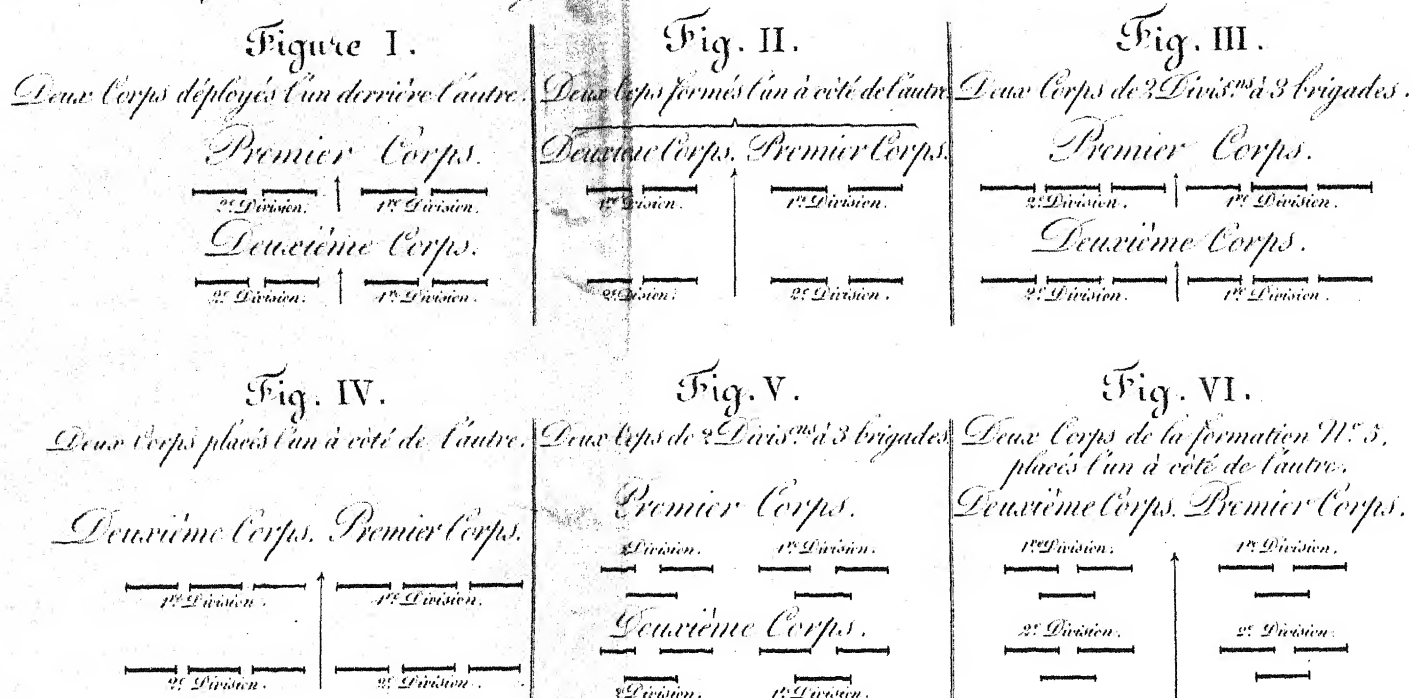 Figure I.
Deux Corps déployés l'un derrière l'autre.
Premier Corps.
2e Division. 1re Division.
Deuxième Corps.
2e Division. 1re Division.
Fig. II.
Deux Cps formés l'un à côté de l'autre
Deuxième Corps. Premier Corps.
1re Division. 1re Division.
2e Division. 2e Division.
Fig. III.
Deux Corps de 2 Divisons à 3 brigades.
Premier Corps.
2e Division. 1re Division.
Deuxième Corps.
2e Division. 1re Division.
Fig. IV.
Deux Corps placés l'un à côté de l'autre.
Deuxième Corps. Premier Corps.
1re Division. 1re Division.
2e Division. 2e Division.
Fig. V.
Deux Cps de 2 Divisons à 3 brigades
Premier Corps.
2 Division. 1re Division.
Deuxième Corps.
2 Division. 1re Division.
Fig. VI.
Deux Corps de la formation No 5,
placés l'un à côté de l'autre.
Deuxième Corps. Premier Corps.
1re Division. 1re Division.
2e Division. 2e Division.